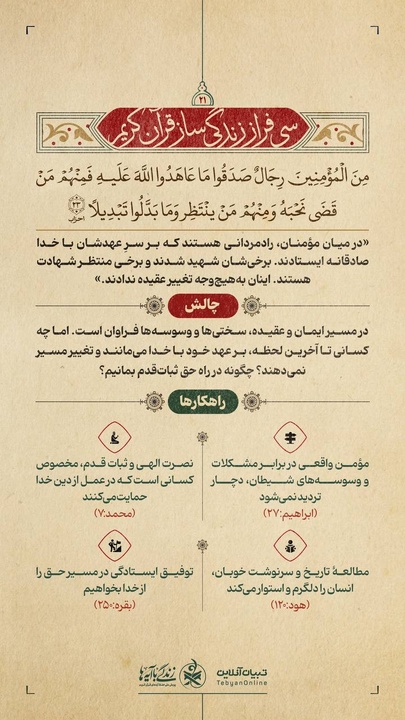 ۲۱
سی فراز زندگی‌ساز قرآن کریم
مِنَ الْمُؤْمِنِينَ رِجَالٌ صَدَقُوا مَا عَاهَدُوا اللَّهَ عَلَيْهِ فَمِنْهُمْ مَنْ
قَضَى نَحْبَهُ وَمِنْهُمْ مَنْ يَنْتَظِرُ وَمَا بَدَّلُوا تَبْدِيلًا ۲۳ احزاب
«در میان مؤمنان، رادمردانی هستند که بر سر عهدشان با خدا
صادقانه ایستادند. برخی‌شان شهید شدند و برخی منتظر شهادت
هستند. اینان به‌هیچ‌وجه تغییر عقیده ندادند.»
چالش
در مسیر ایمان و عقیده، سختی‌ها و وسوسه‌ها فراوان است. اما چه
کسانی تا آخرین لحظه، بر عهد خود با خدا می‌مانند و تغییر مسیر
نمی‌دهند؟ چگونه در راه حق ثبات‌قدم بمانیم؟
راهکارها
مؤمن واقعی در برابر مشکلات
و وسوسه‌های شیطان، دچار
تردید نمی‌شود
(ابراهیم:۲۷)
نصرت الهی و ثبات قدم، مخصوص
کسانی است که در عمل از دین خدا
حمایت می‌کنند
(محمد:۷)
مطالعهٔ تاریخ و سرنوشت خوبان،
انسان را دلگرم و استوار می‌کند
(هود:۱۲۰)
توفیق ایستادگی در مسیر حق را
از خدا بخواهیم
(بقره:۲۵۰)
تبیان آنلاین
TebyanOnline
زندگی با آیه‌ها